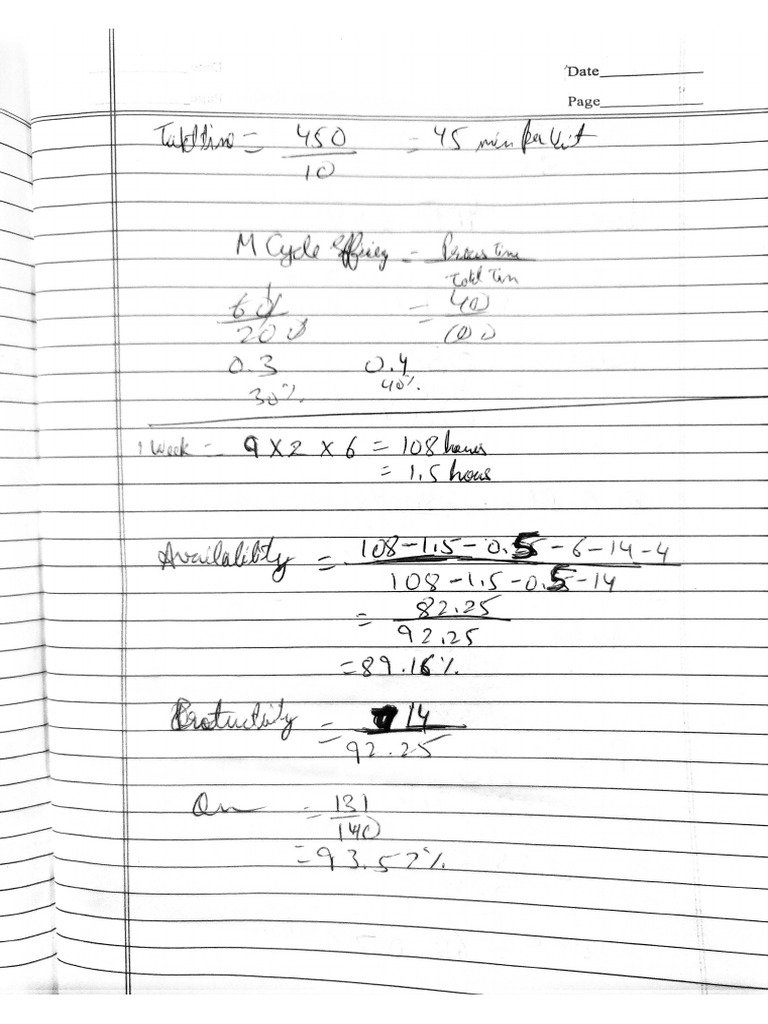 Date
Page
Takt time = 450 / 10 = 45 min per Unit
M Cycle = Process Time / Total Tim
60 / 200 = 40 / 100
0.3 0.4
30% 40%
1 Week = 9 × 2 × 6 = 108 hours
= 1.5 hours
Availability = 108 - 1.5 - 0.5 - 6 - 14 - 4 / 108 - 1.5 - 0.5 - 14
= 82.25 / 92.25
= 89.16%
= 14 / 92.25
= 131 / 140
= 93.57%